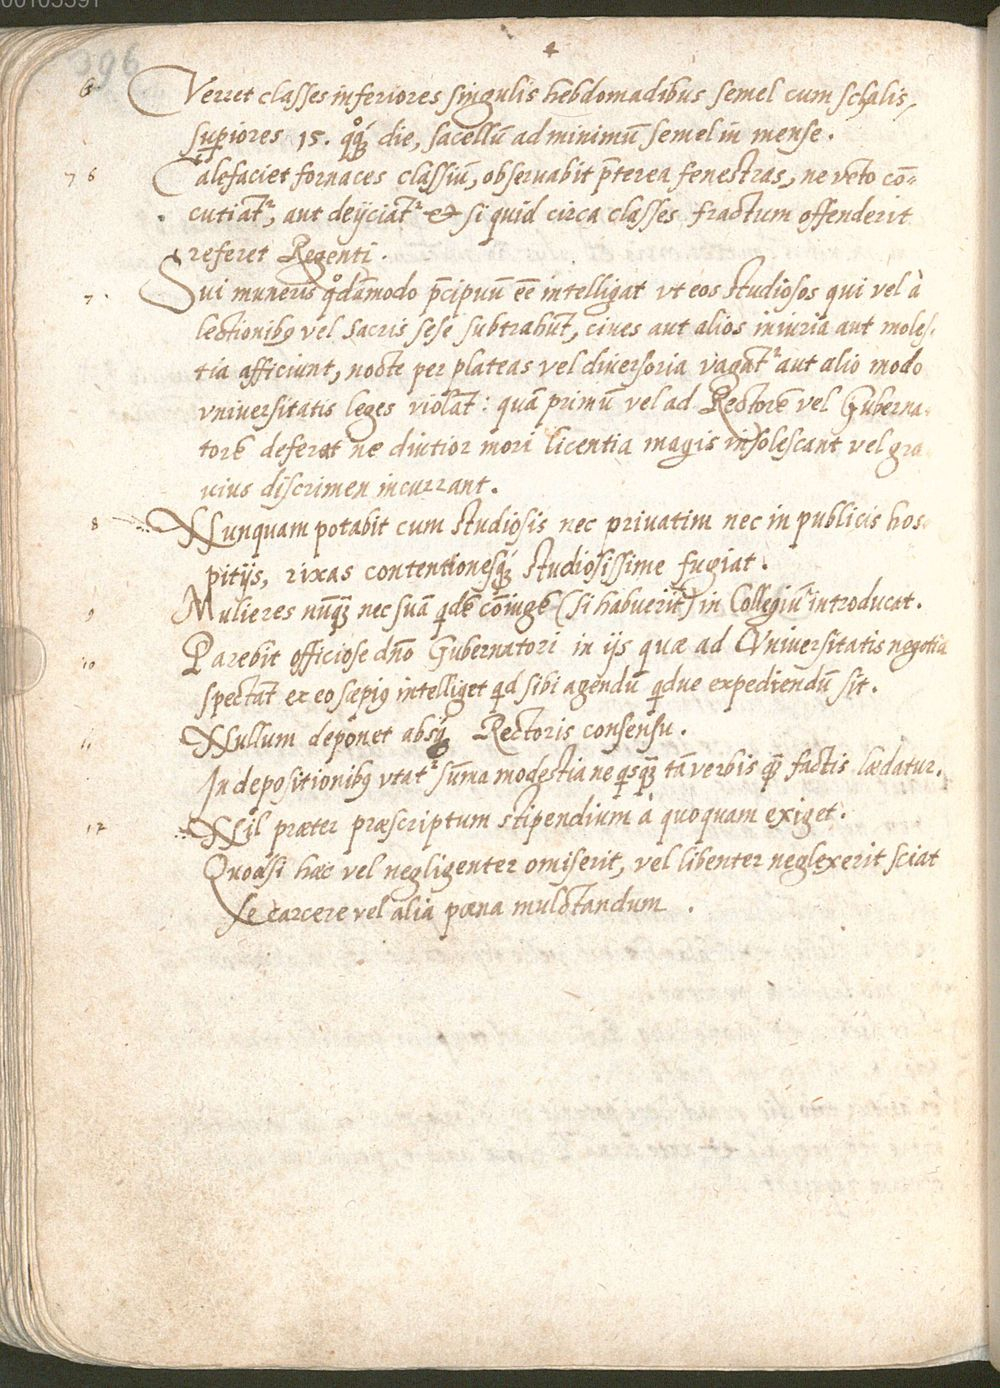 00105391
396
4
6 Verret classes inferiores singulis hebdomadibus semel cum schalis,
suꝑiores 15. qͦq́ꝫ die, sacellū ad minimū semel in mense.
7 6 Calefaciet fornaces classiū, obseruabit p̄terea fenestras, ne veto cō=
cutiat᷑, aut deijciat᷑ et si quid circa classes fractum offenderit
referet Regenti.
7. Sui muneris qͦdāmodo p̄cipuū eē intelligat vt eos studiosos qui vel à
lectionibꝰ vel sacris sese subtrahūt, ciues aut alios iniuria aut moles-
tia afficiunt, nocte per plateas vel diuersoria vagāt᷑ aut alio modo
vniuersitatis leges violāt: quā primū vel ad Rectorē vel Guberna-
torē deferat ne diutior mori licentia magis insolescant vel gra
uius discrimen incurrant.
8 Nunquam potabit cum studiosis nec priuatim nec in publicis hos-
pitijs, rixas contentionesq́ꝫ studiosissime fugiat.
9 Mulieres nūqꝫ nec suā qdē cōiugē (si habuerit) in Collegiū introducat.
10 Parebit officiose dn̄o Gubernatori in ijs quæ ad Vniuersitatis negotia
spectāt ex eo sæpiꝰ intelliget qd sibi agendū qdue expediendū sit.
11 Nullum deponet absq́ꝫ Rectoris consensu.
In depositionibꝰ vtat᷑ sūma modestia ne qsqꝫ tā verbis qꝫ factis lædatur.
12 Nil præter præscriptum stipendium à quoquam exiget.
Quòd si hæc vel negligenter omiserit, vel libenter neglexerit sciat
se carcere vel alia pœna mulctandum.